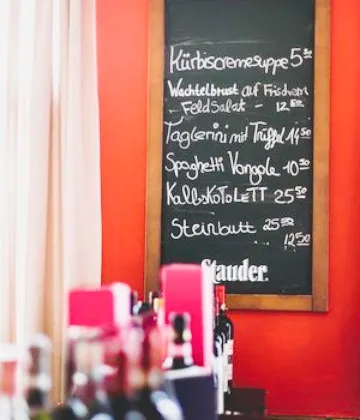 Kürbiscremesuppe 5.50
Wachtelbrust auf Frischem
Feldsalat - 12.50
Taglerini mit Trüffel 14.50
Spaghetti Vongole 10.50
Kalbskotolett 25.50
Steinbutt 25.50
12.50
Stauder